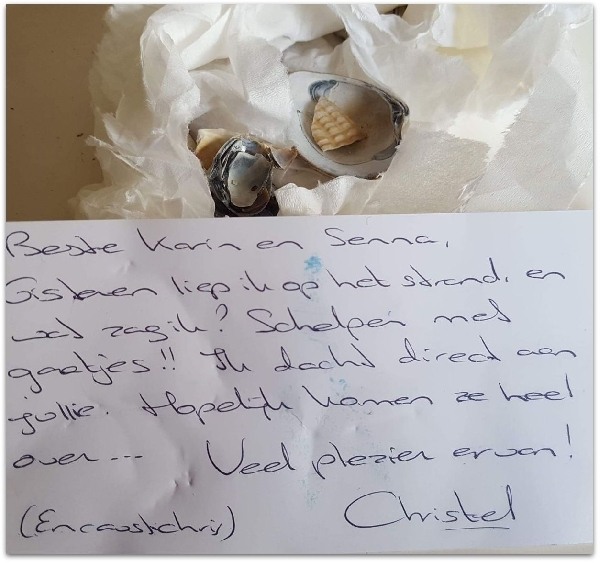 Beste Karin en Senna,
Gisteren liep ik op het strand, en
wat zag ik? Schelpen met
gaatjes!! Ik dacht direct aan
jullie. Hopelijk komen ze heel
over... Veel plezier ervan!
(Encaustchris) Christel